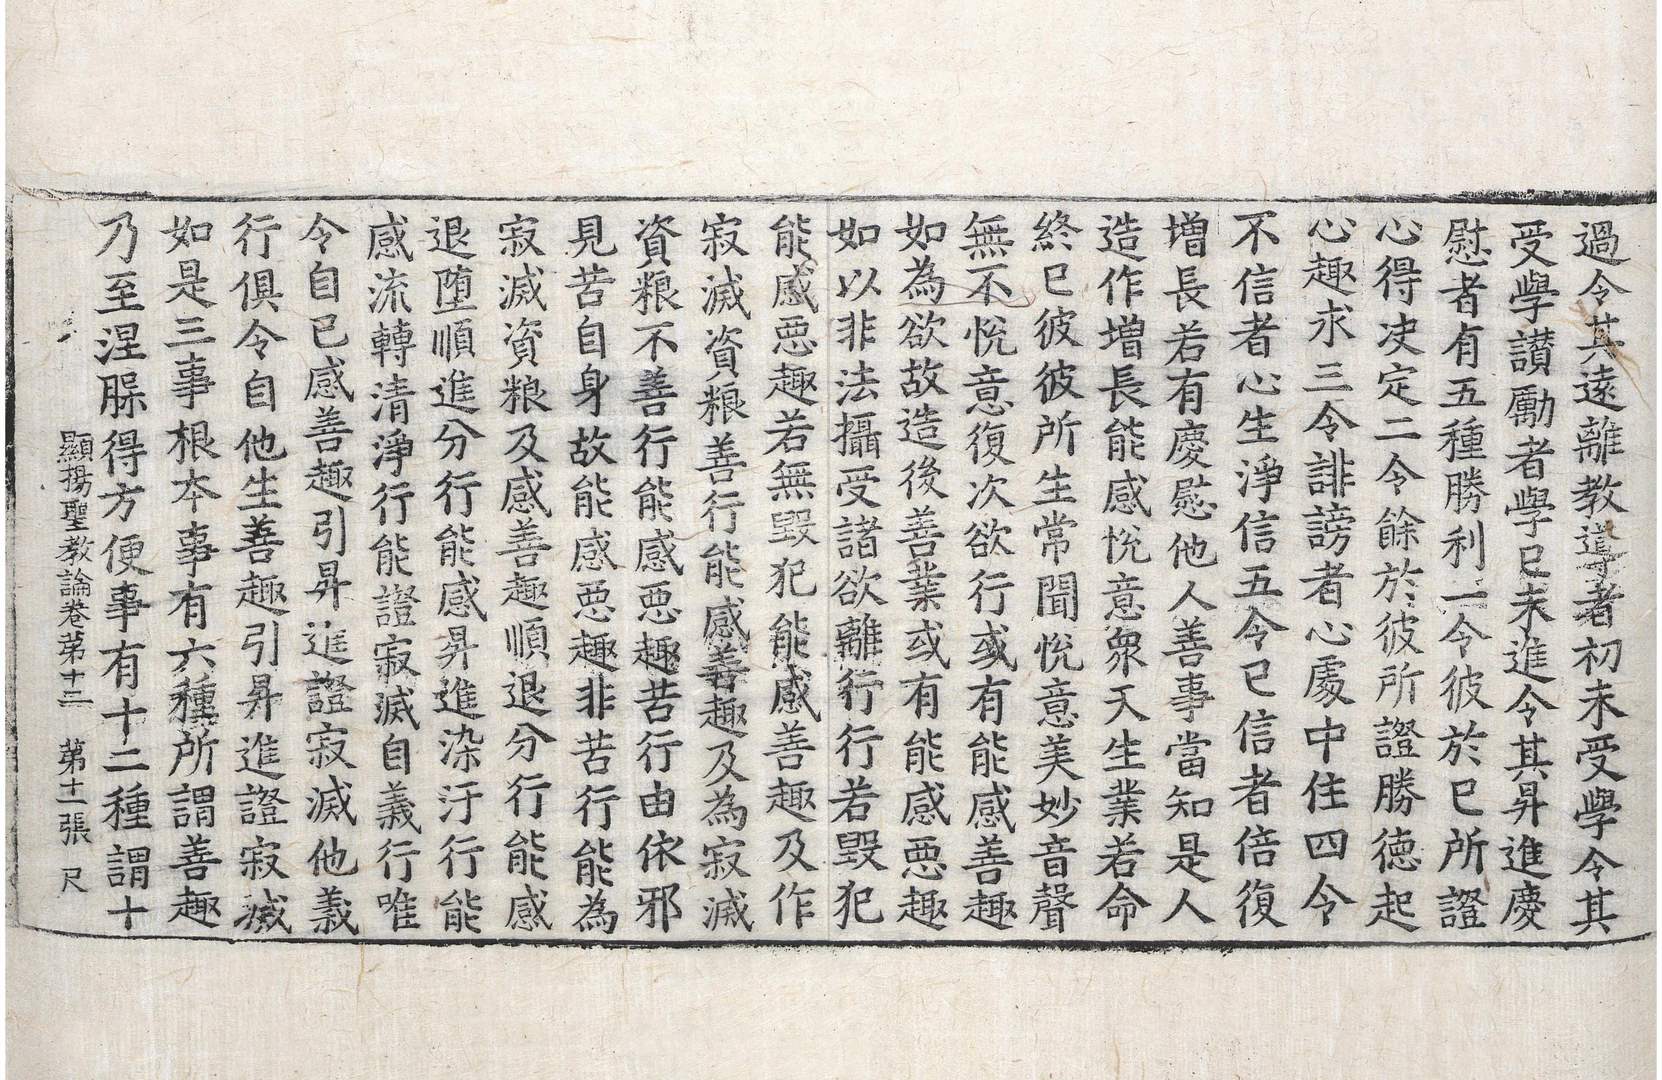 過令其遠離教導者初未受學令其
受學讃勵者學已未進令其昇進慶
慰者有五種勝利一令彼於已所證
心得决定二令餘於彼所證勝德起
心趣求三令誹謗者心處中住四令
不信者心生淨信五令已信者倍復
增長若有慶慰他人善事當知是人
造作增長能感悅意衆天生業若命
終已彼彼所生常聞悅意美妙音聲
無不悅意復次欲行或有能感善趣
如為欲故造後善業或有能感惡趣
如以非法攝受諸欲離行行若毀犯
能感惡趣若無毀犯能感善趣及作
寂滅資粮善行能感善趣及為寂滅
資粮不善行能感惡趣苦行由依邪
見苦自身故能感惡趣非苦行能為
寂滅資粮及感善趣順退分行能感
退墮順進分行能感昇進染汙行能
感流轉清淨行能證寂滅自義行唯
令自己感善趣引昇進證寂滅他義
行俱令自他生善趣引昇進證寂滅
如是三事根本事有六種所謂善趣
乃至涅槃得方便事有十二種謂十
顯揚聖教論卷第十二 第十一張 尺